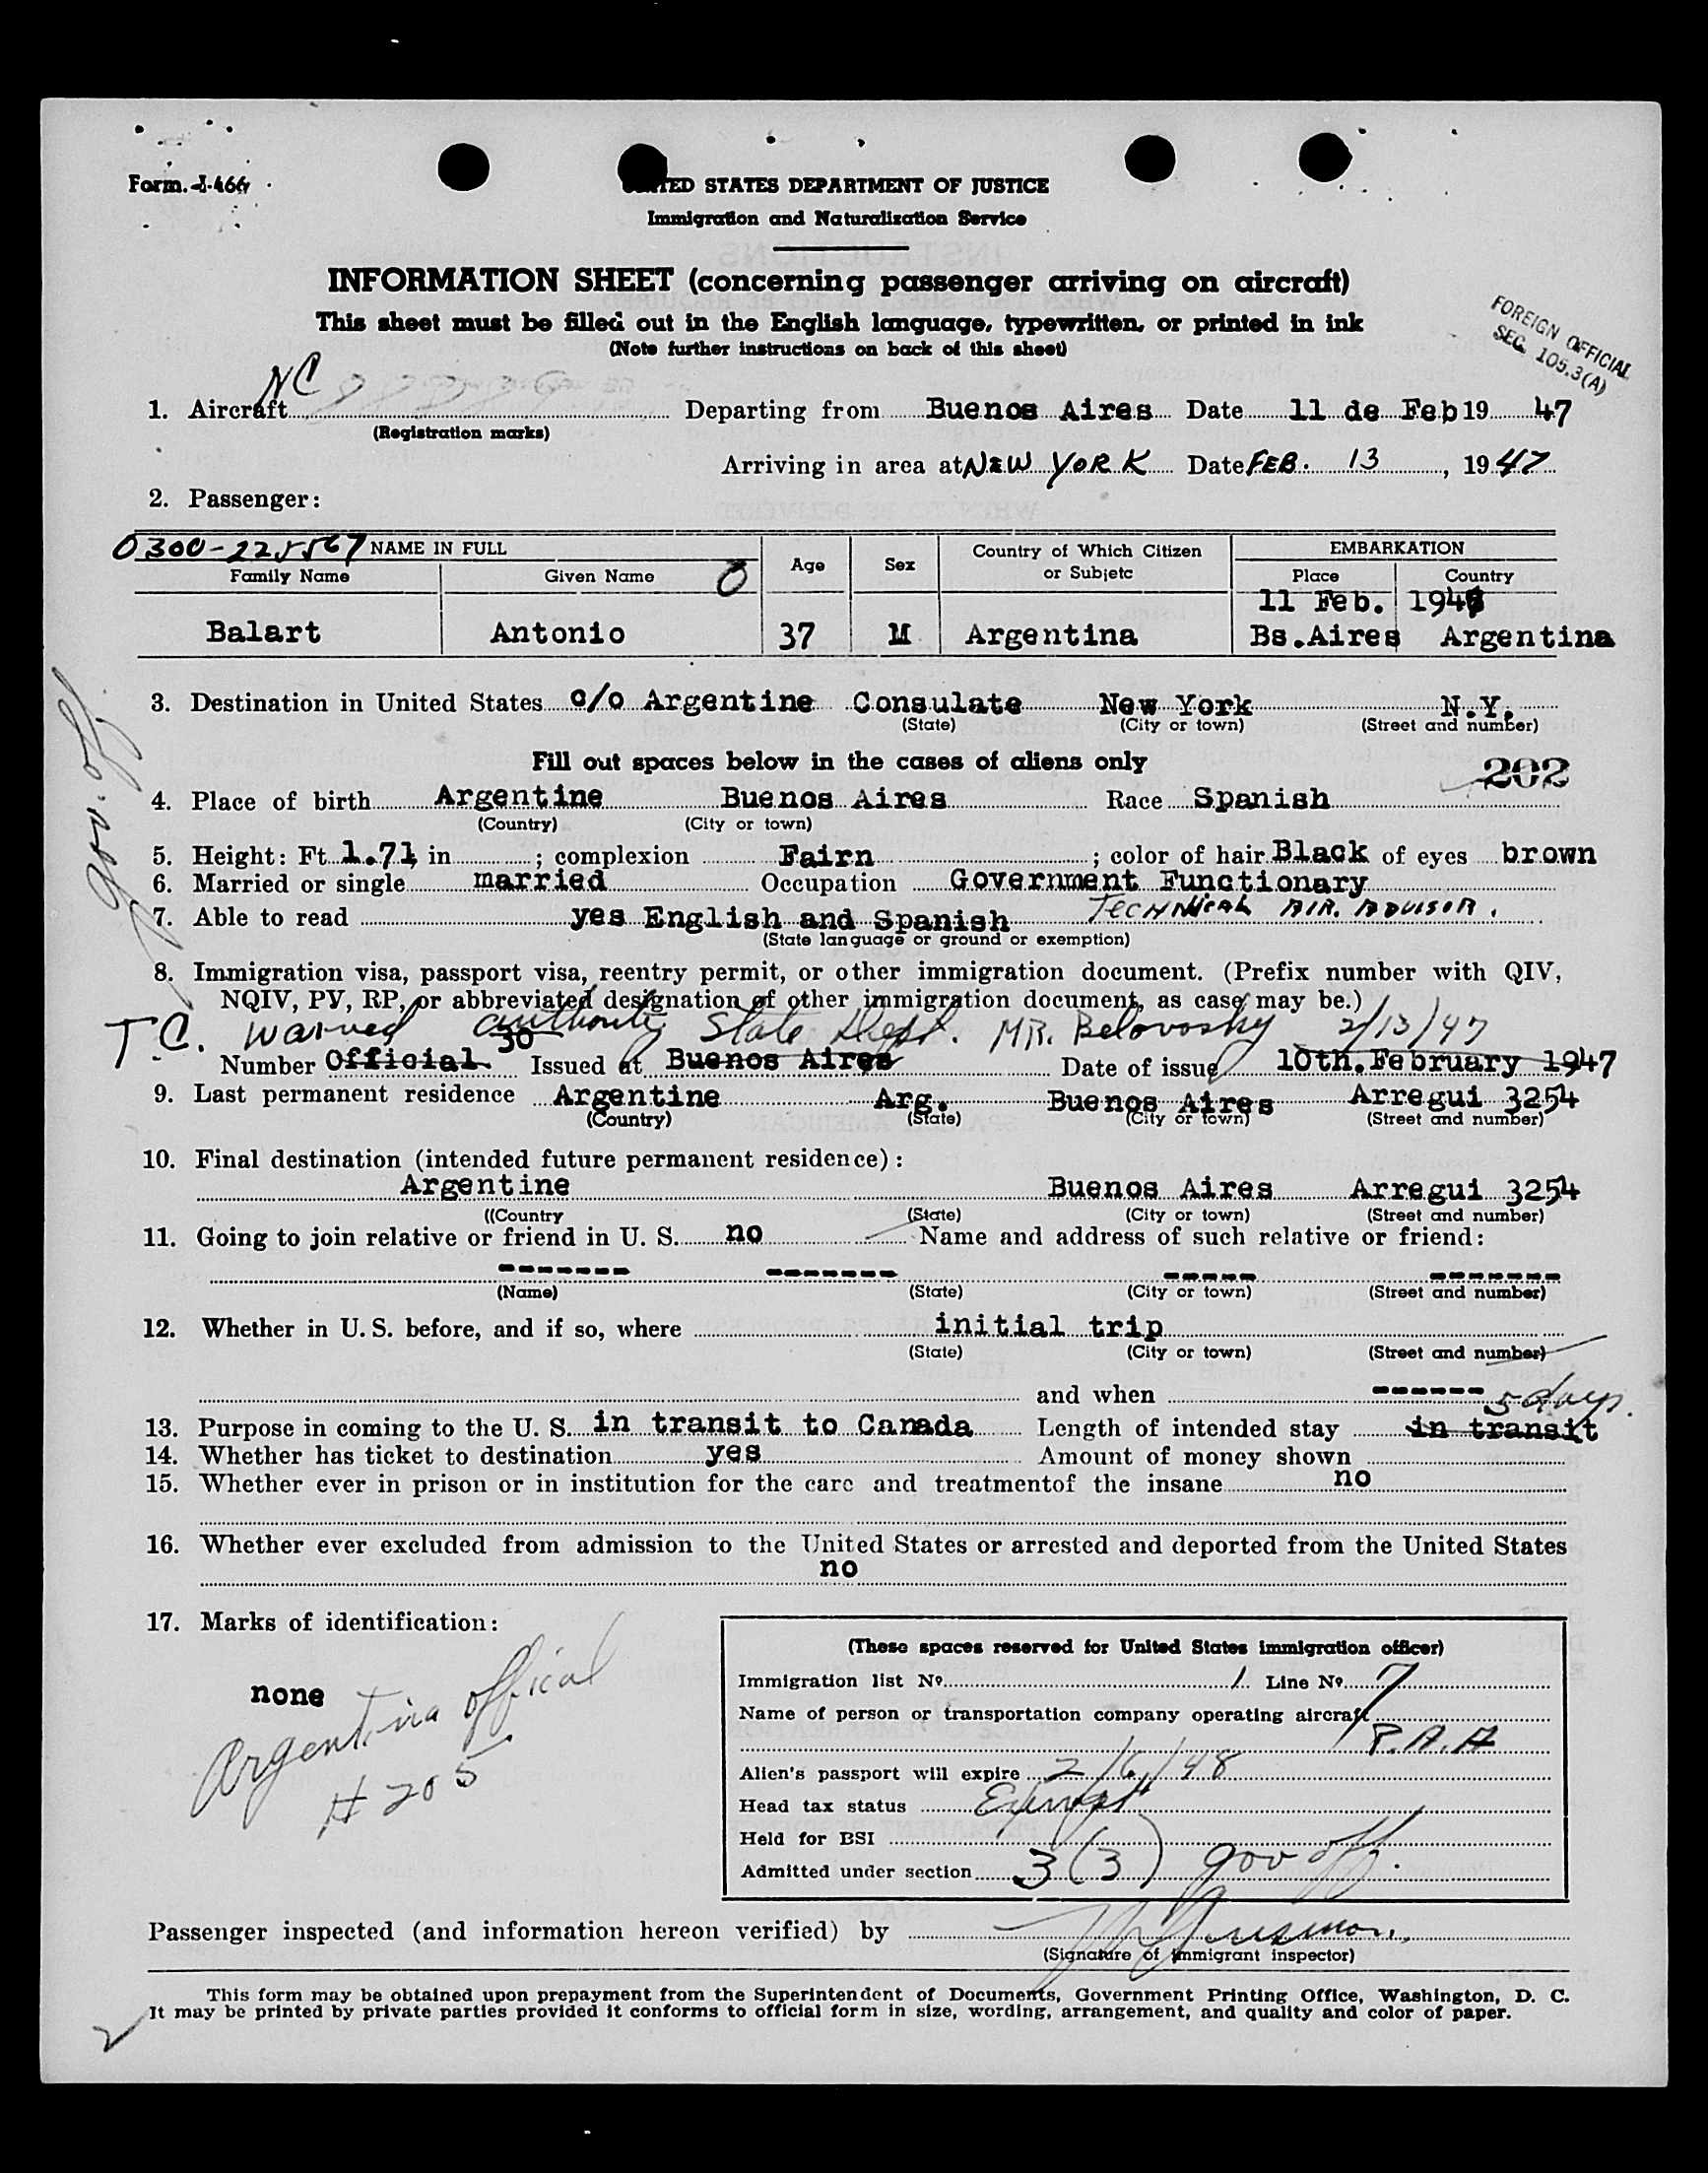 Form. I-466
UNITED STATES DEPARTMENT OF JUSTICE
Immigration and Naturalization Service
INFORMATION SHEET (concerning passenger arriving on aircraft)
This sheet must be filled out in the English language, typewritten, or printed in ink
(Note further instructions on back of this sheet)
FOREIGN OFFICIAL
SEC. 105.3(A)
1. Aircraft NC Departing from Buenos Aires Date 11 de Feb 19 47
(Registration marks)
Arriving in area at NEW YORK Date FEB. 13, 19 47
2. Passenger:
0300-225567 NAME IN FULL Age Sex Country of Which Citizen or Subjetc EMBARKATION
Family Name Given Name O Place Country
11 Feb. 194
Balart Antonio 37 M Argentina Bs.Aires Argentina
3. Destination in United States c/o Argentine Consulate New York N.Y.
(State) (City or town) (Street and number)
Fill out spaces below in the cases of aliens only
202
4. Place of birth Argentine Buenos Aires Race Spanish
(Country) (City or town)
5. Height: Ft 1.71 in ; complexion Fairn ; color of hair Black of eyes brown
6. Married or single married Occupation Government Functionary
TECHNICAL AIR. ADVISOR.
7. Able to read yes English and Spanish
(State language or ground or exemption)
Gov. off
8. Immigration visa, passport visa, reentry permit, or other immigration document. (Prefix number with QIV,
NQIV, PV, RP, or abbreviated designation of other immigration document, as case may be.)
T.C. waived authority State Dept. MR. Belovosky 2/13/47
Number Official 30 Issued at Buenos Aires Date of issue 10th. February 1947
9. Last permanent residence Argentine Arg. Buenos Aires Arregui 3254
(Country) (State) (City or town) (Street and number)
10. Final destination (intended future permanent residence):
Argentine Buenos Aires Arregui 3254
((Country (State) (City or town) (Street and number)
11. Going to join relative or friend in U. S. no Name and address of such relative or friend:
------- ------- ----- -------
(Name) (State) (City or town) (Street and number)
12. Whether in U. S. before, and if so, where initial trip
(State) (City or town) (Street and number)
and when ------
5 days.
13. Purpose in coming to the U. S. in transit to Canada Length of intended stay in transit
14. Whether has ticket to destination yes Amount of money shown
15. Whether ever in prison or in institution for the care and treatmentof the insane no
16. Whether ever excluded from admission to the United States or arrested and deported from the United States
no
17. Marks of identification:
none
Argentina offical
# 205
(These spaces reserved for United States immigration officer)
Immigration list Nº 1 Line Nº 7
Name of person or transportation company operating aircraft
P.A.A
Alien's passport will expire 2/6/48
Head tax status Exempt
Held for BSI
Admitted under section 3(3) gov off.
Passenger inspected (and information hereon verified) by
(Signature of immigrant inspector)
This form may be obtained upon prepayment from the Superintendent of Documents, Government Printing Office, Washington, D. C.
It may be printed by private parties provided it conforms to official form in size, wording, arrangement, and quality and color of paper.
2